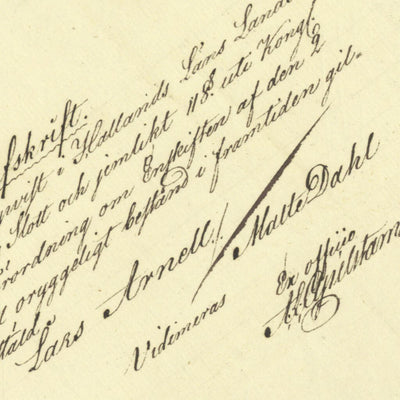 fskrift.
grift i Hallands Läns Lands
Slott och jemlikt 18§. uti Kongl.
rordning om Enskiften af den 2
oryggeligt bestånd i framtiden gil-
Lars Arnell / Malte Dahl
Vidimeras
Ex officio